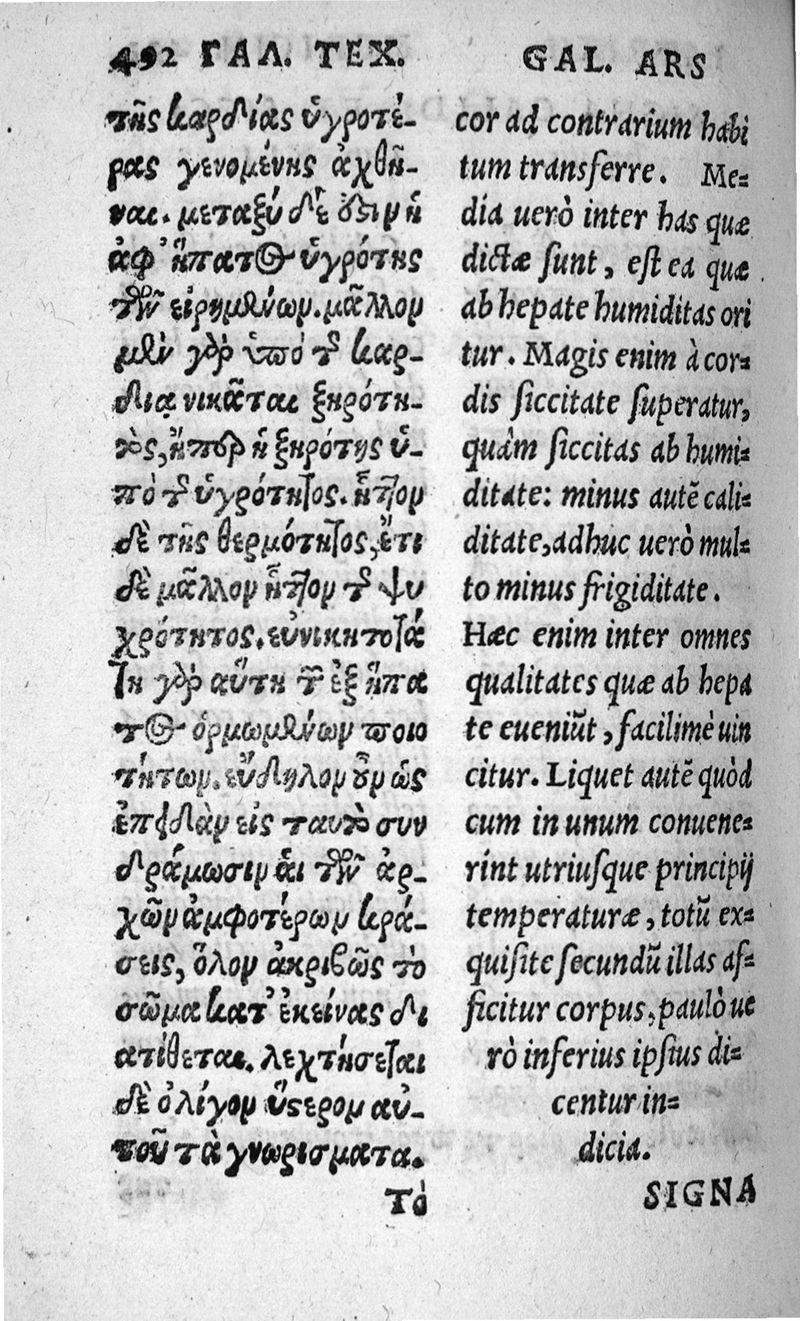 492 ΓΑΛ. ΤΕΧ.
τῆς καρδίας ὑγροτέ-
ρας γενομένης ἀχθῆ-
ναι. μεταξύ δέ ἐστιν ἡ
ἀφ’ ἥπατος ὑγρότης
τῶν εἰρημένων. μᾶλλον
μὲν γὰρ ὑπὸ τῆς καρ-
δία νικᾶται ξηρότη-
τος, ἤπερ ἡ ξηρότης ὑ-
πὸ τῆς ὑγρότητος. ἧττον
δὲ τῆς θερμότητος, ἔτι
δὲ μᾶλλον ἧττον τῆς ψυ
χρότητος. εὐνικητοτά
τη γὰρ αὕτη τῶν ἐξ ἥπα
τος ὁρμωμένων ποιο
τήτων. εὔδηλον οὖν ὡς
ἐπειδὰν εἰς ταυτὸ συν
δράμωσιν αἱ τῶν ἀρ-
χῶν ἀμφοτέρων κρά-
σεις, ὅλον ἀκριβῶς τὸ
σῶμα κατ’ ἐκείνας δι
ατίθεται. λεχτήσεται
δὲ ὀλίγον ὕστερον αὐ-
τοῦ τὰ γνωρίσματα.
Τὸ
GAL. ARS
cor ad contrarium habi
tum transferre. Me-
dia uerò inter has quæ
dictæ sunt, est ea quæ
ab hepate humiditas ori
tur. Magis enim à cor-
dis siccitate superatur,
quàm siccitas ab humi-
ditate: minus autē cali-
ditate, adhuc uerò mul-
to minus frigiditate.
Hæc enim inter omnes
qualitates quæ ab hepa
te eueniūt, facilimè uin
citur. Liquet autē quòd
cum in unum conuene-
rint utriusque principij
temperaturæ, totū ex-
quisite secundū illas af-
ficitur corpus, paulò ue
rò inferius ipsius di-
centur in-
dicia.
SIGNA